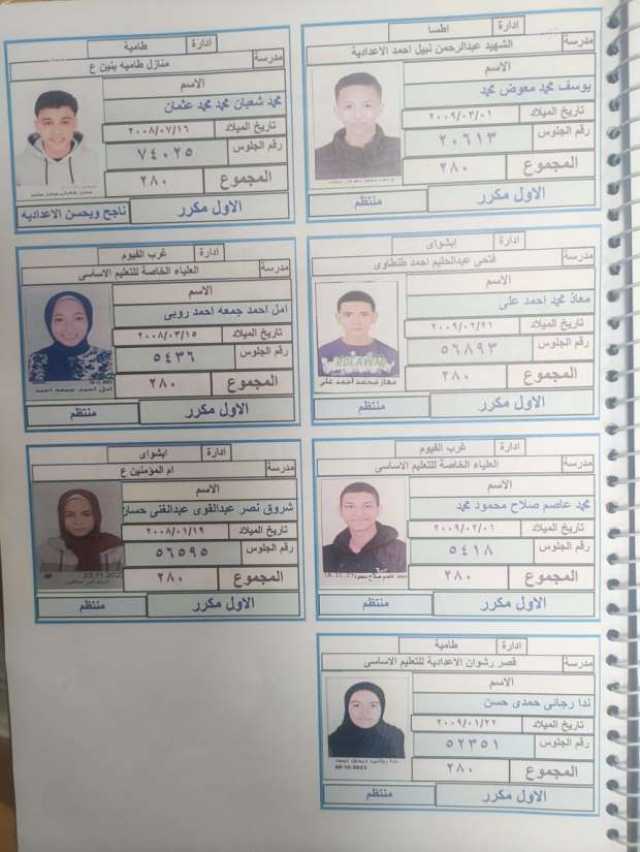 ادارة اطسا
مدرسة الشهيد عبدالرحمن نبيل احمد الاعدادية
الاسم
يوسف محمد معوض محمد
تاريخ الميلاد ٢٠٠٩/٠٣/٠١
رقم الجلوس ٢٠٦١٣
المجموع ٢٨٠
الاول مكرر منتظم
ادارة طامية
مدرسة منازل طاميه بنين ع
الاسم
محمد شعبان محمد محمد عثمان
تاريخ الميلاد ٢٠٠٨/٠٧/١٦
رقم الجلوس ٧٤٠٢٥
المجموع ٢٨٠
الاول مكرر ناجح ويحسن الاعداديه
ادارة ابشواى
مدرسة فتحى عبدالحليم احمد طنطاوى
الاسم
معاذ محمد احمد على
تاريخ الميلاد ٢٠٠٩/٠٢/٢١
رقم الجلوس ٥٦٨٩٣
المجموع ٢٨٠
معاذ محمد احمد على
الاول مكرر منتظم
ادارة غرب الفيوم
مدرسة العلياء الخاصة للتعليم الاساسى
الاسم
امل احمد جمعه احمد روبى
تاريخ الميلاد ٢٠٠٨/٠٣/١٥
رقم الجلوس ٥٤٣٦
المجموع ٢٨٠
امل احمد جمعه احمد
الاول مكرر منتظم
ادارة غرب الفيوم
مدرسة العلياء الخاصة للتعليم الاساسى
الاسم
محمد عاصم صلاح محمود محمد
تاريخ الميلاد ٢٠٠٩/٠٢/٠١
رقم الجلوس ٥٤١٨
المجموع ٢٨٠
الاول مكرر منتظم
ادارة ابشواى
مدرسة ام المؤمنين ع
الاسم
شروق نصر عبدالقوى عبدالغنى
تاريخ الميلاد ٢٠٠٨/٠١/١٩
رقم الجلوس ٥٦٥٩٥
المجموع ٢٨٠
الاول مكرر منتظم
ادارة طامية
مدرسة قصر رشوان الاعدادية للتعليم الاساسى
الاسم
ندا رجائى حمدى حسن
تاريخ الميلاد ٢٠٠٩/٠١/٢٢
رقم الجلوس ٥٢٣٥١
المجموع ٢٨٠
الاول مكرر منتظم